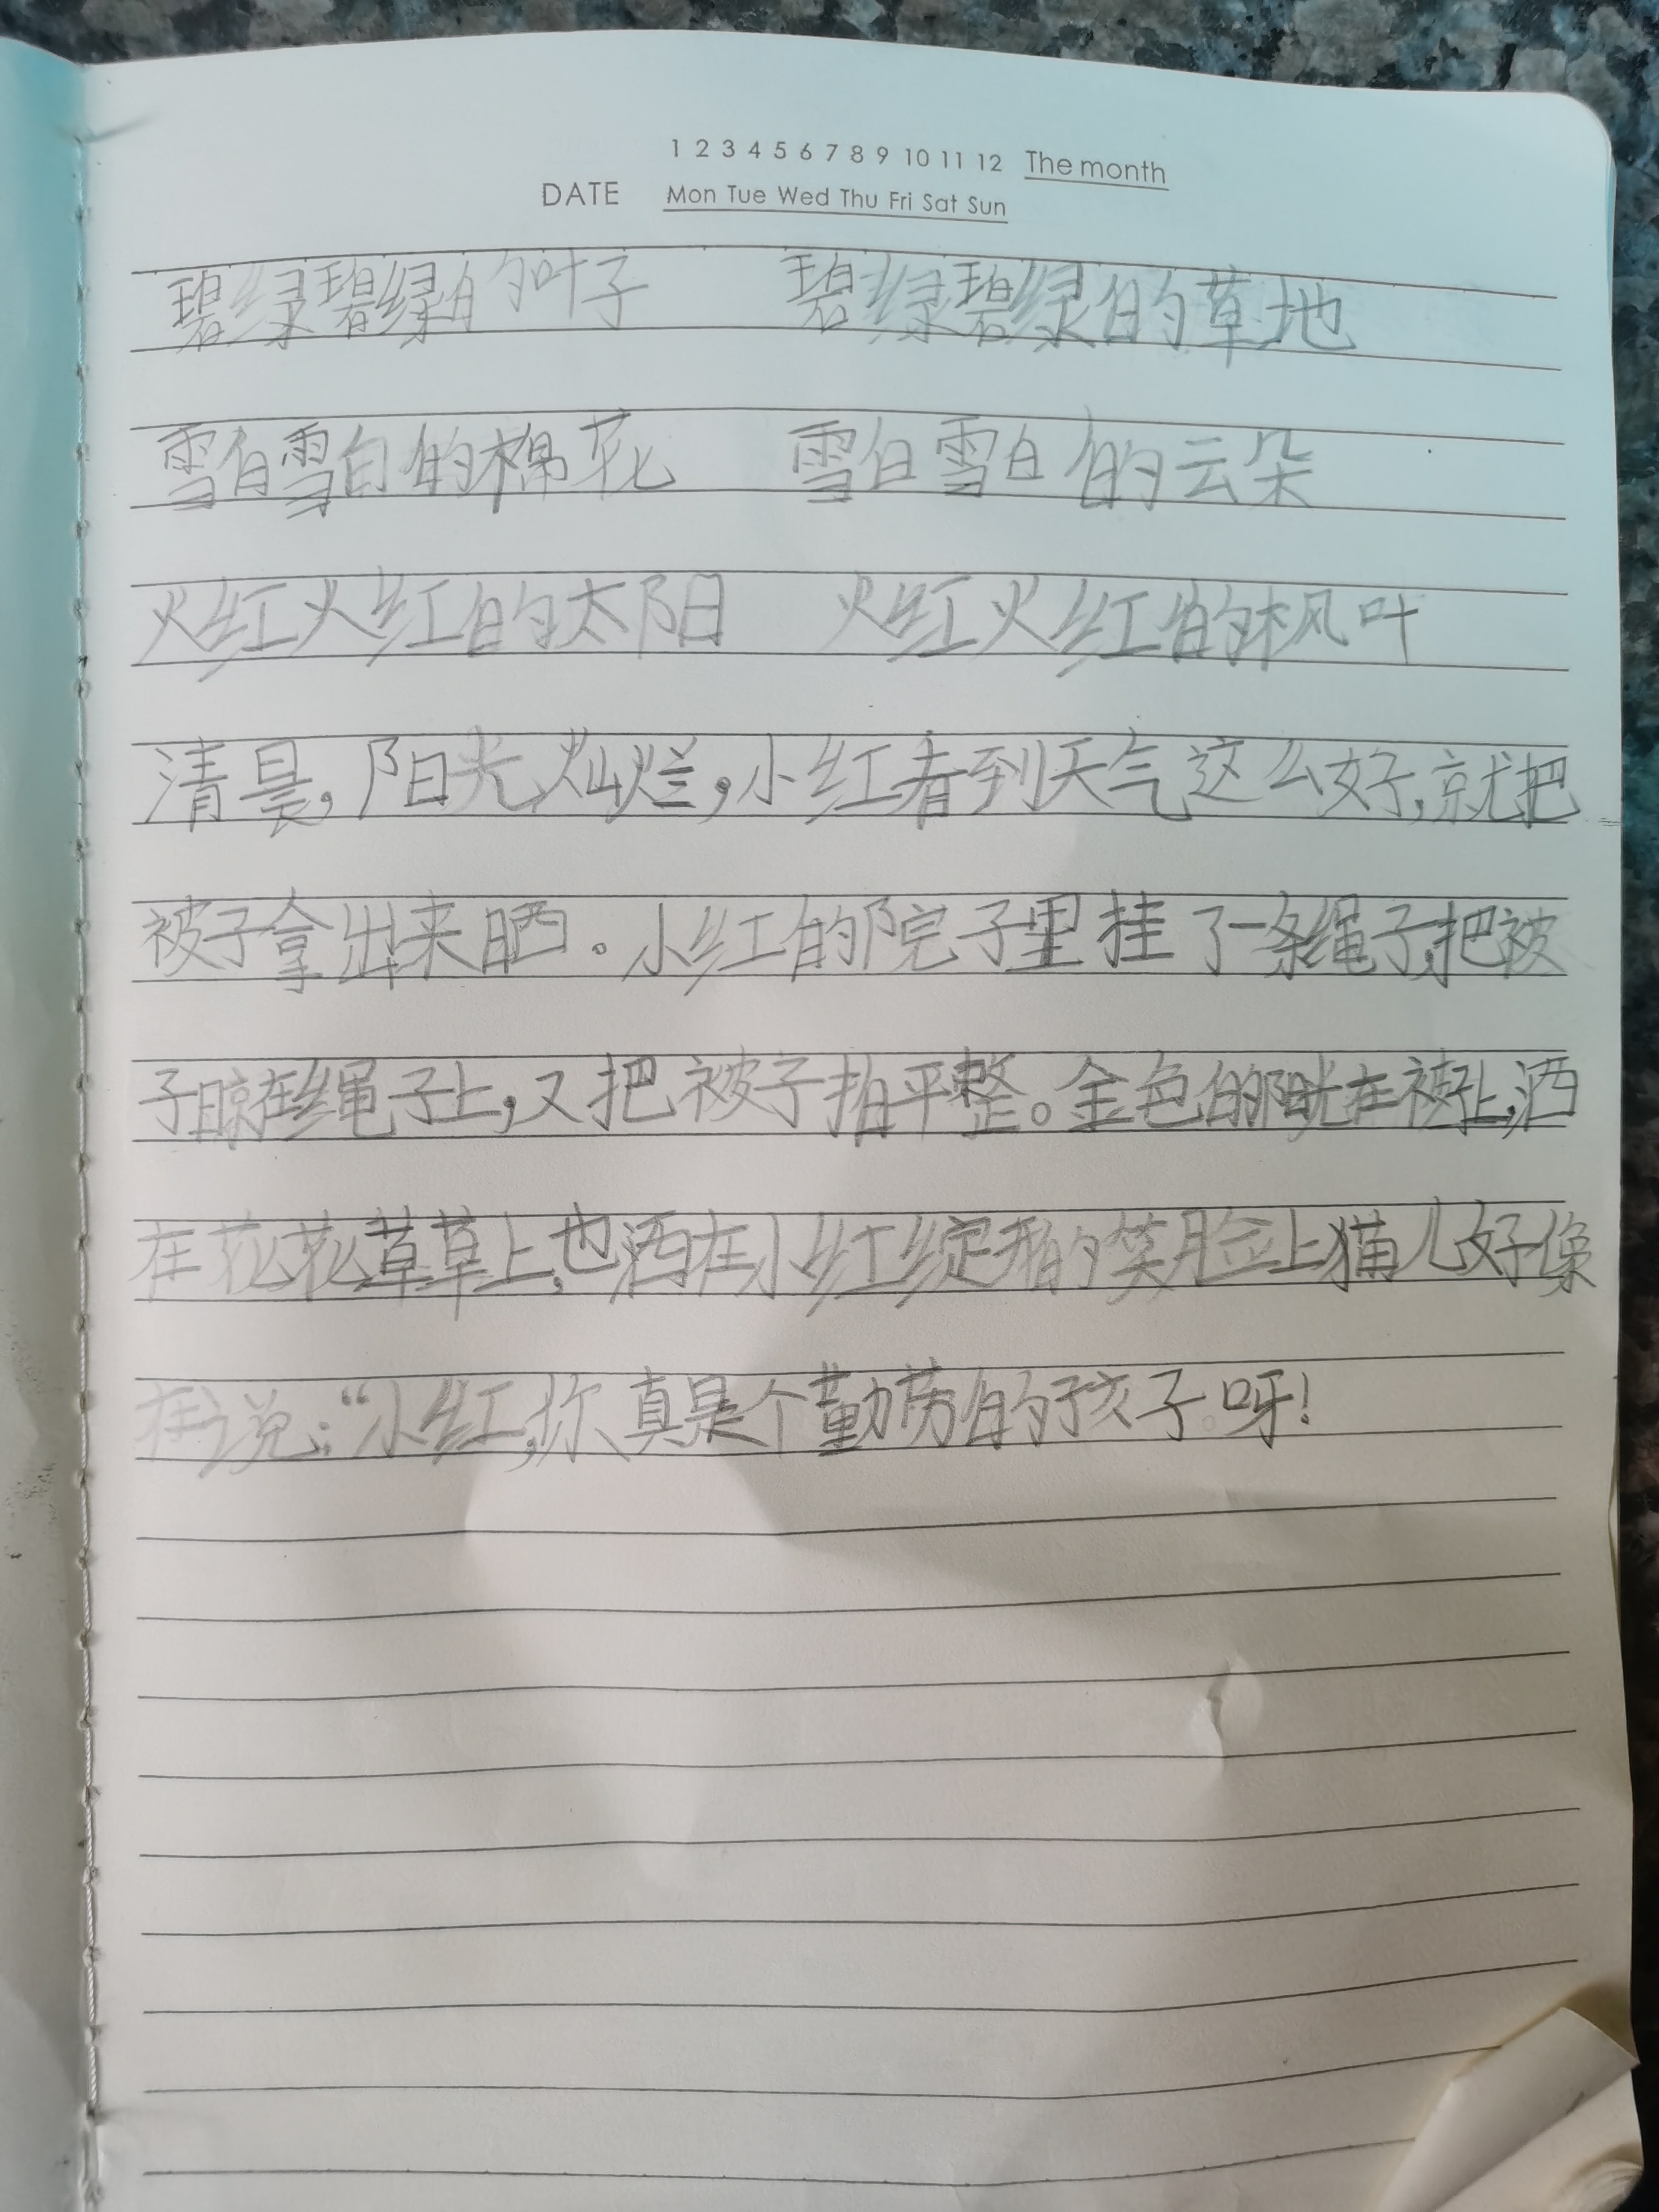 1 2 3 4 5 6 7 8 9 10 11 12 The month
DATE Mon Tue Wed Thu Fri Sat Sun
碧绿碧绿的叶子 碧绿碧绿的草地
雪白雪白的棉花 雪白雪白的云朵
火红火红的太阳 火红火红的枫叶
清晨,阳光灿烂,小红看到天气这么好,就把
被子拿出来晒。小红的院子里挂了一条绳子,把被
子晾在绳子上,又把被子拍平整。金色的阳光在被子上,洒
在花花草草上,也洒在小红绽开的笑脸上猫儿好像
在说:“小红,你真是个勤劳的孩子呀!